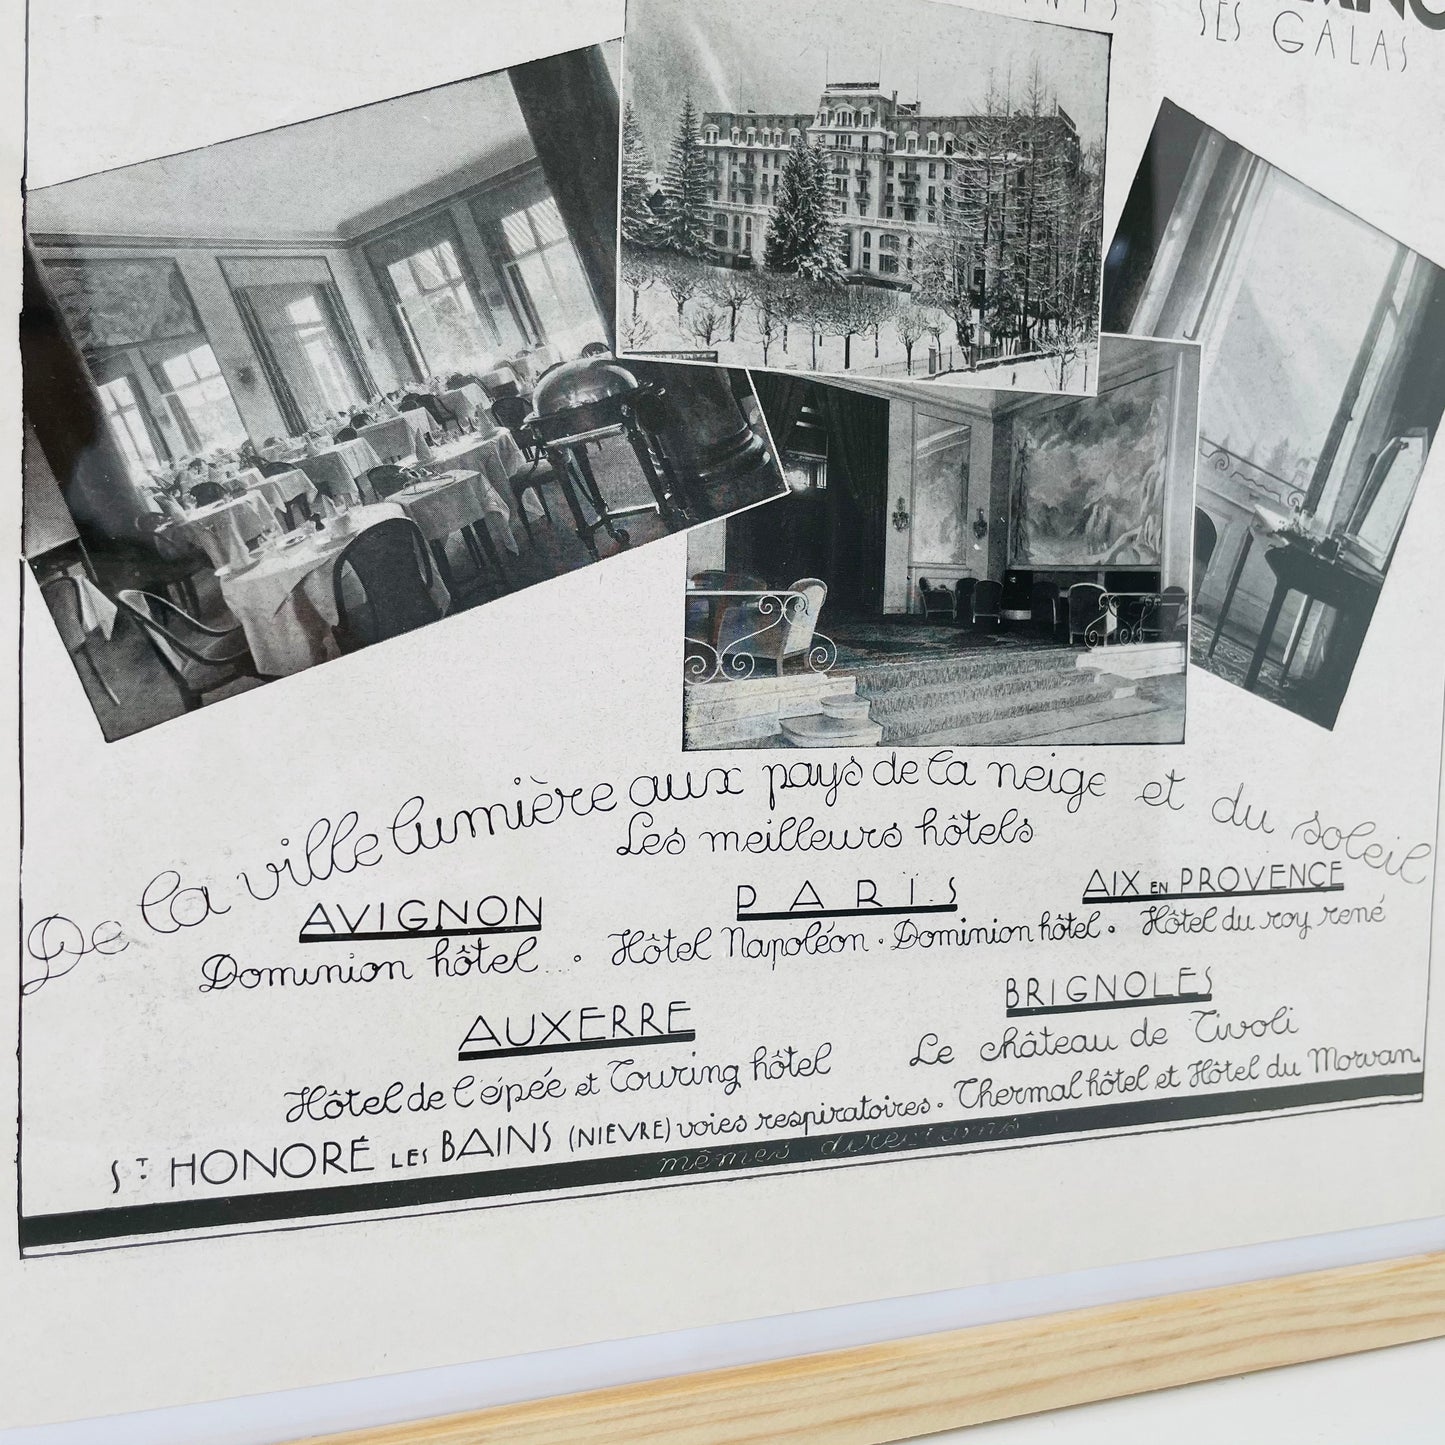 SES GALAS
De la ville lumière aux pays de la neige et du soleil
Les meilleurs hôtels
AVIGNON
Dominion hôtel.
PARIS
Hôtel Napoléon. Dominion hôtel.
AIX EN PROVENCE
Hôtel du roy rené
AUXERRE
Hôtel de l'épée et Touring hôtel
BRIGNOLES
Le château de Tivoli
ST. HONORÉ LES BAINS (NIEVRE) voies respiratoires. Thermal hôtel et Hôtel du Morvan.
mêmes directions